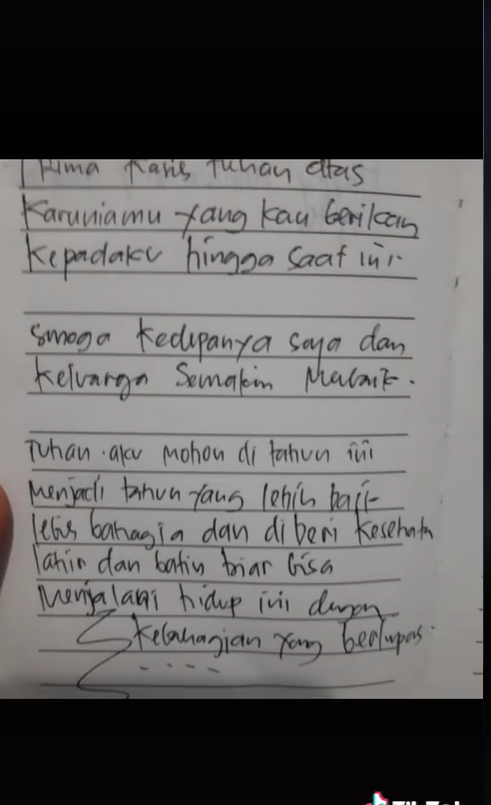 Trima Kasis Tuhan atas
Karuniamu yang kau berikan
Kepadaku hingga saat ini.
Smoga Kedepanya saya dan
Keluarga Semakin Mubaik.
Tuhan aku mohon di tahun ini
Menjadi tahun yang lebih baik
lebis bahagia dan di beri Kesehata
lahir dan batin biar bisa
Menjalani hidup ini dengan
Kebahagian yang